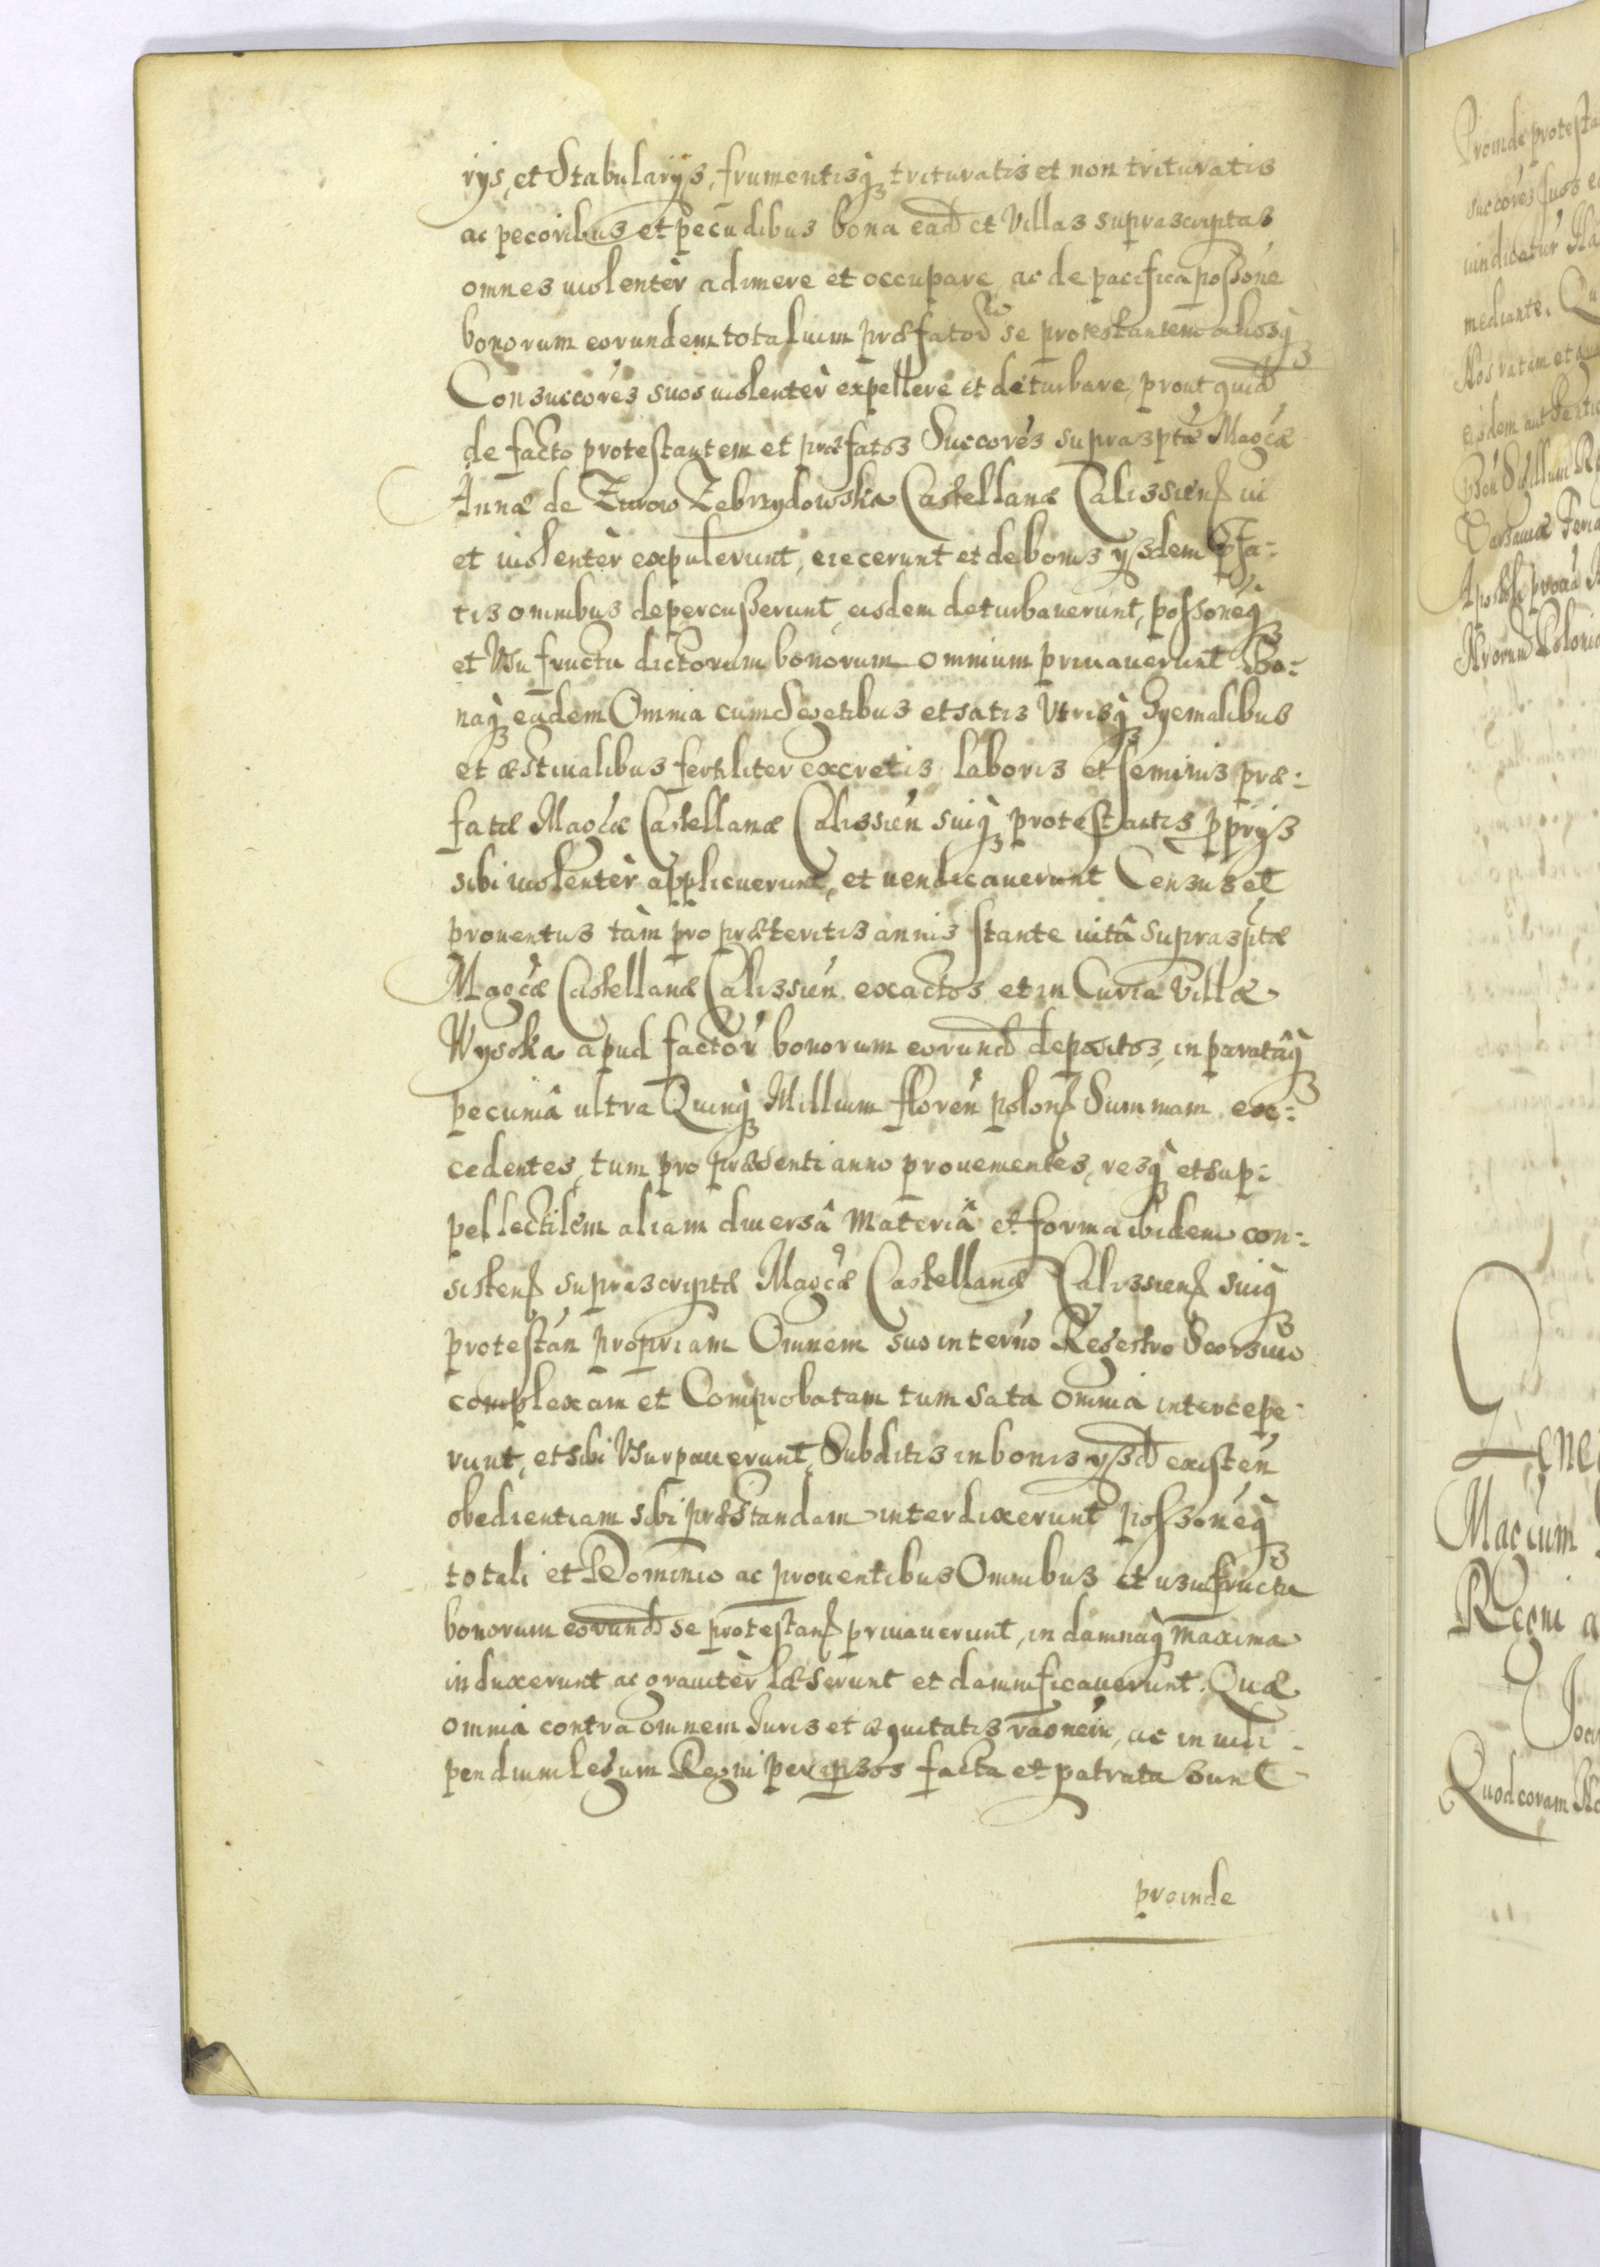 rijs, et Stabularijs, frumentisq3 trituratis et non trituratis
ac pecoribus et pecudibus bona ead et Villas suprascriptas
omnes violentèr adimere et occupare ac de pacifica possóne
bonorum eorundem totalium præfator se protestantem aliosq3
Consuccóres suos violentèr expellere et deturbare, prout quid
de facto protestantem et præfatos Succóres suprasptæ Magcæ
Annæ de Zebrzydowska Castellanæ Calissien vi
et violentèr expulerunt, eiecerunt et de bonis ysdem
tis omnibus depercusserunt, eisdem deturbauerunt, possoneq3
et Vsufructu dictorum bonorum omnium priuauerunt Bo:
naq3 eadem Omnia cum Segetibus et satis Vtrisq3 Hyemalibus
et æstiualibus fertiliter excretis laboris et seminis præ:
fatæ Magcæ Castellanæ Calissień suiq3 protestantis pprijs
sibi violentèr applicuerunt, et vendicauerunt Census et
prouentus tàm pro præteritis annis stante vitâ suprasptæ
Magcæ Castellanæ Calissień exactos et in Curia Villæ
Wysoka apud factor bonorum eorund depositos, in paratâq3
pecuniâ ultra Quinq3 Millium floreń polon Summam ex:
cedentes, tum pro præsenti anno prouenientes, resq3 et sup:
pellectilem aliam diuersâ Materiâ et forma ibidem con:
sisten suprascriptæ Magcæ Castellanæ Calissien suiq3
protestán propriam Omnem suo interno Regestro Seorsiuo
complexam et Comprobatam tum sata omnia intercepe:
runt, et sibi Vsurpauerunt, Subditis in bonis ysd existeń
obedientiam sibi præstandam interdixerunt possonéq3
totali et Dominio ac prouentibus Omnibus et usufructu
bonorum eorund se protestan priuauerunt, in damnaq3 maxima
induxerunt ac grauitèr læserunt et damnificauerunt. Quæ
omnia contra omnem Iuris et æquitatis raonem, ac in vili:
pendium legum Regni per ipsos facta et patrata sunt
proinde
Proinde protesta
succóres suos e
vindicatur
mediante. Qu
Nos ratam et
eisdem authentic
Sigillum Re
Varsauiæ Feria
Magcium
Regni a
Quod coram